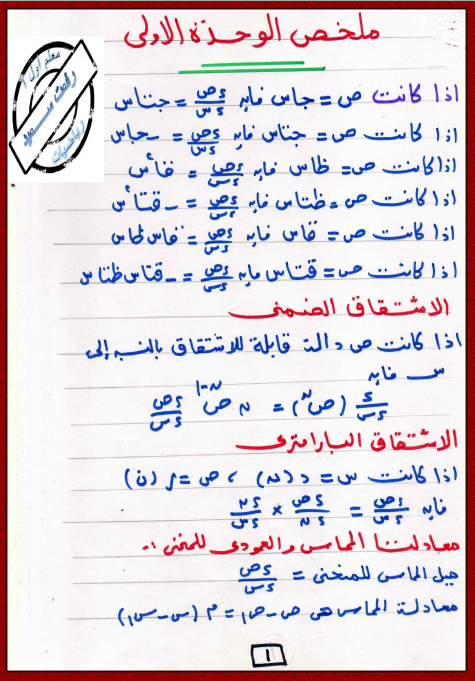 ملخص الوحدة الاولى
معلم اول أ
رفعت سعود
رياضيات
اذا كانت ص = جاس فإن ءص/ءس = جتاس
اذا كانت ص = جتاس فإن ءص/ءس = -جاس
اذا كانت ص = ظاس فإن ءص/ءس = قا²س
اذا كانت ص = ظتاس فإن ءص/ءس = - قتا²س
اذا كانت ص = قاس فإن ءص/ءس = قاس ظاس
اذا كانت ص = قتاس فإن ءص/ءس = - قتاس ظتاس
الاشتقاق الضمنى
اذا كانت ص دالة قابلة للاشتقاق بالنسبه إلى
س فإن
ء/ءس (صⁿ) = ن صⁿ⁻¹ ءص/ءس
الاشتقاق البارامترى
اذا كانت س = د(ن) ، ص = ر(ن)
فإن ءص/ءس = ءص/ءن × ءن/ءس
معادلتا المماس والعمودى للمنحنى :-
ميل المماس للمنحنى = ءص/ءس
معادلة المماس هى ص - ص١ = م (س - س١)
١